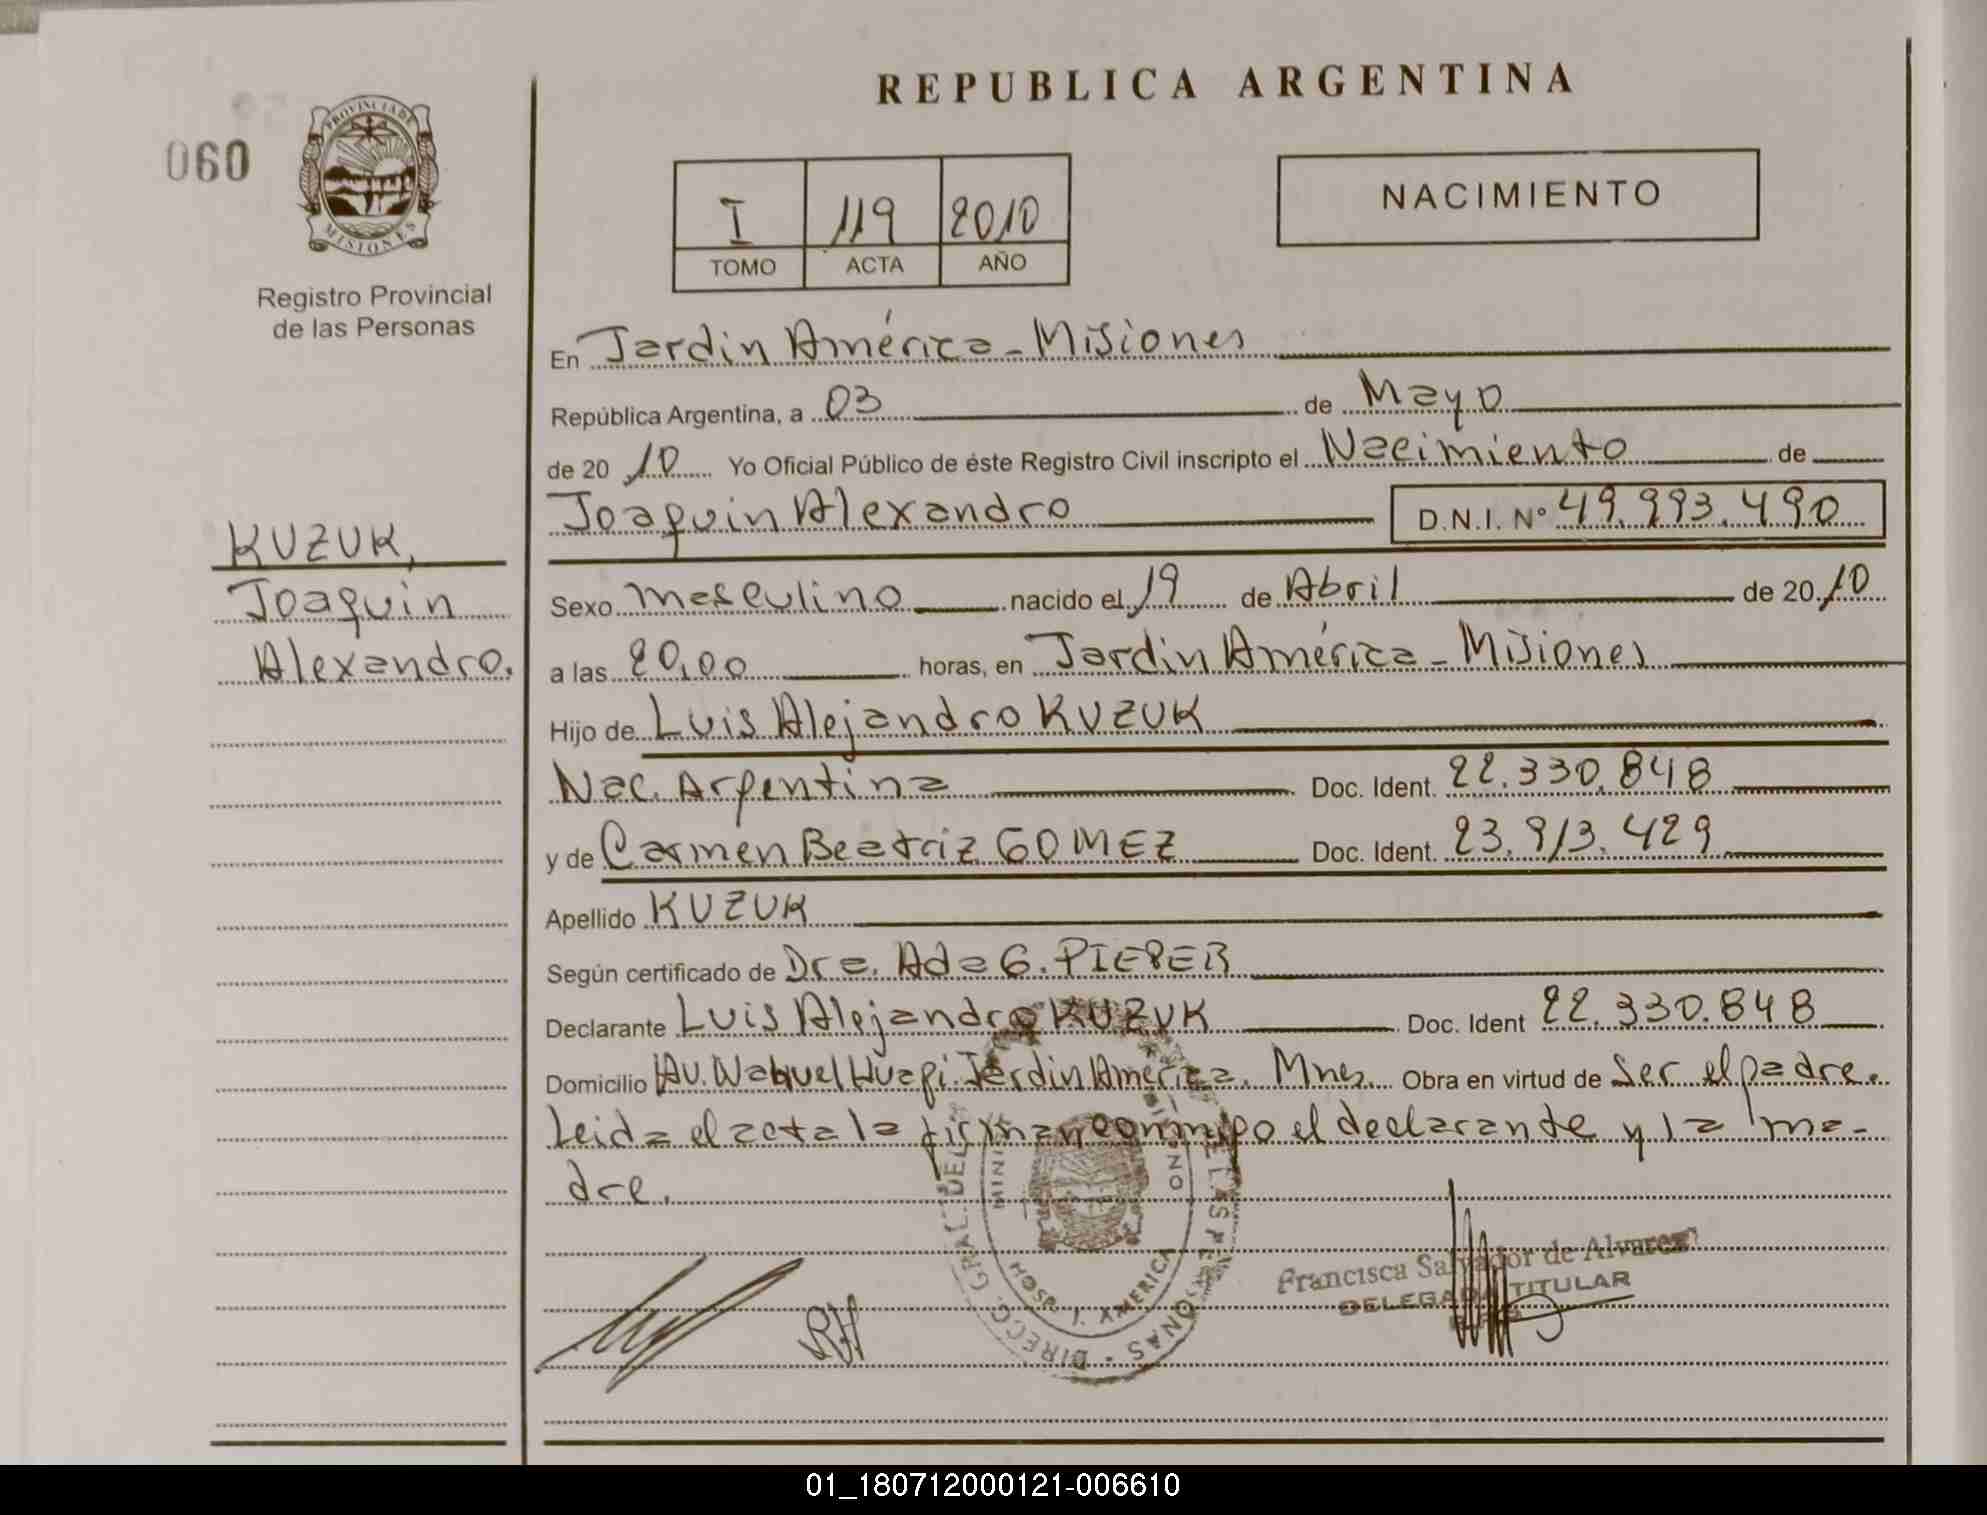 REPUBLICA ARGENTINA
060
PROVINCIA DE
MISIONES
Registro Provincial
de las Personas
I 119 2010
TOMO ACTA AÑO
NACIMIENTO
En Jardin América - Misiones
República Argentina, a 03 de Mayo
de 20 10 Yo Oficial Público de éste Registro Civil inscripto el Nacimiento de
Joaquin Alexandro D.N.I. Nº 49.993.490
KUZUK,
Joaquin
Alexandro.
Sexo masculino nacido el 19 de Abril de 20 10
a las 20,00 horas, en Jardin América - Misiones
Hijo de Luis Alejandro KUZUK
Nac. Argentina Doc. Ident. 22.330.848
y de Carmen Beatriz GOMEZ Doc. Ident. 23.913.429
Apellido KUZUK
Según certificado de Dra. Ada G. PIEPER
Declarante Luis Alejandro KUZUK Doc. Ident 22.330.848
Domicilio Av. Nahuel Huapi. Jardin América. Mnes. Obra en virtud de Ser el padre.
Leida el acta la firman conmigo el declarante y la ma-
dre.
Francisca Salvador de Alvarez
DELEGADA TITULAR
01_180712000121-006610